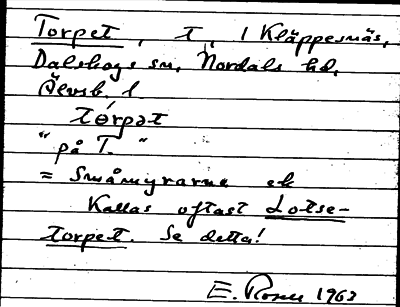 Torpet, t, i Kläppesnäs,
Dalskogs sn, Nordals hd,
Älvsb. l
tórpət
"på T."
= Småmyrarna ek
Kallas oftast Lotse-
torpet. Se detta!
E. Rosen 1963